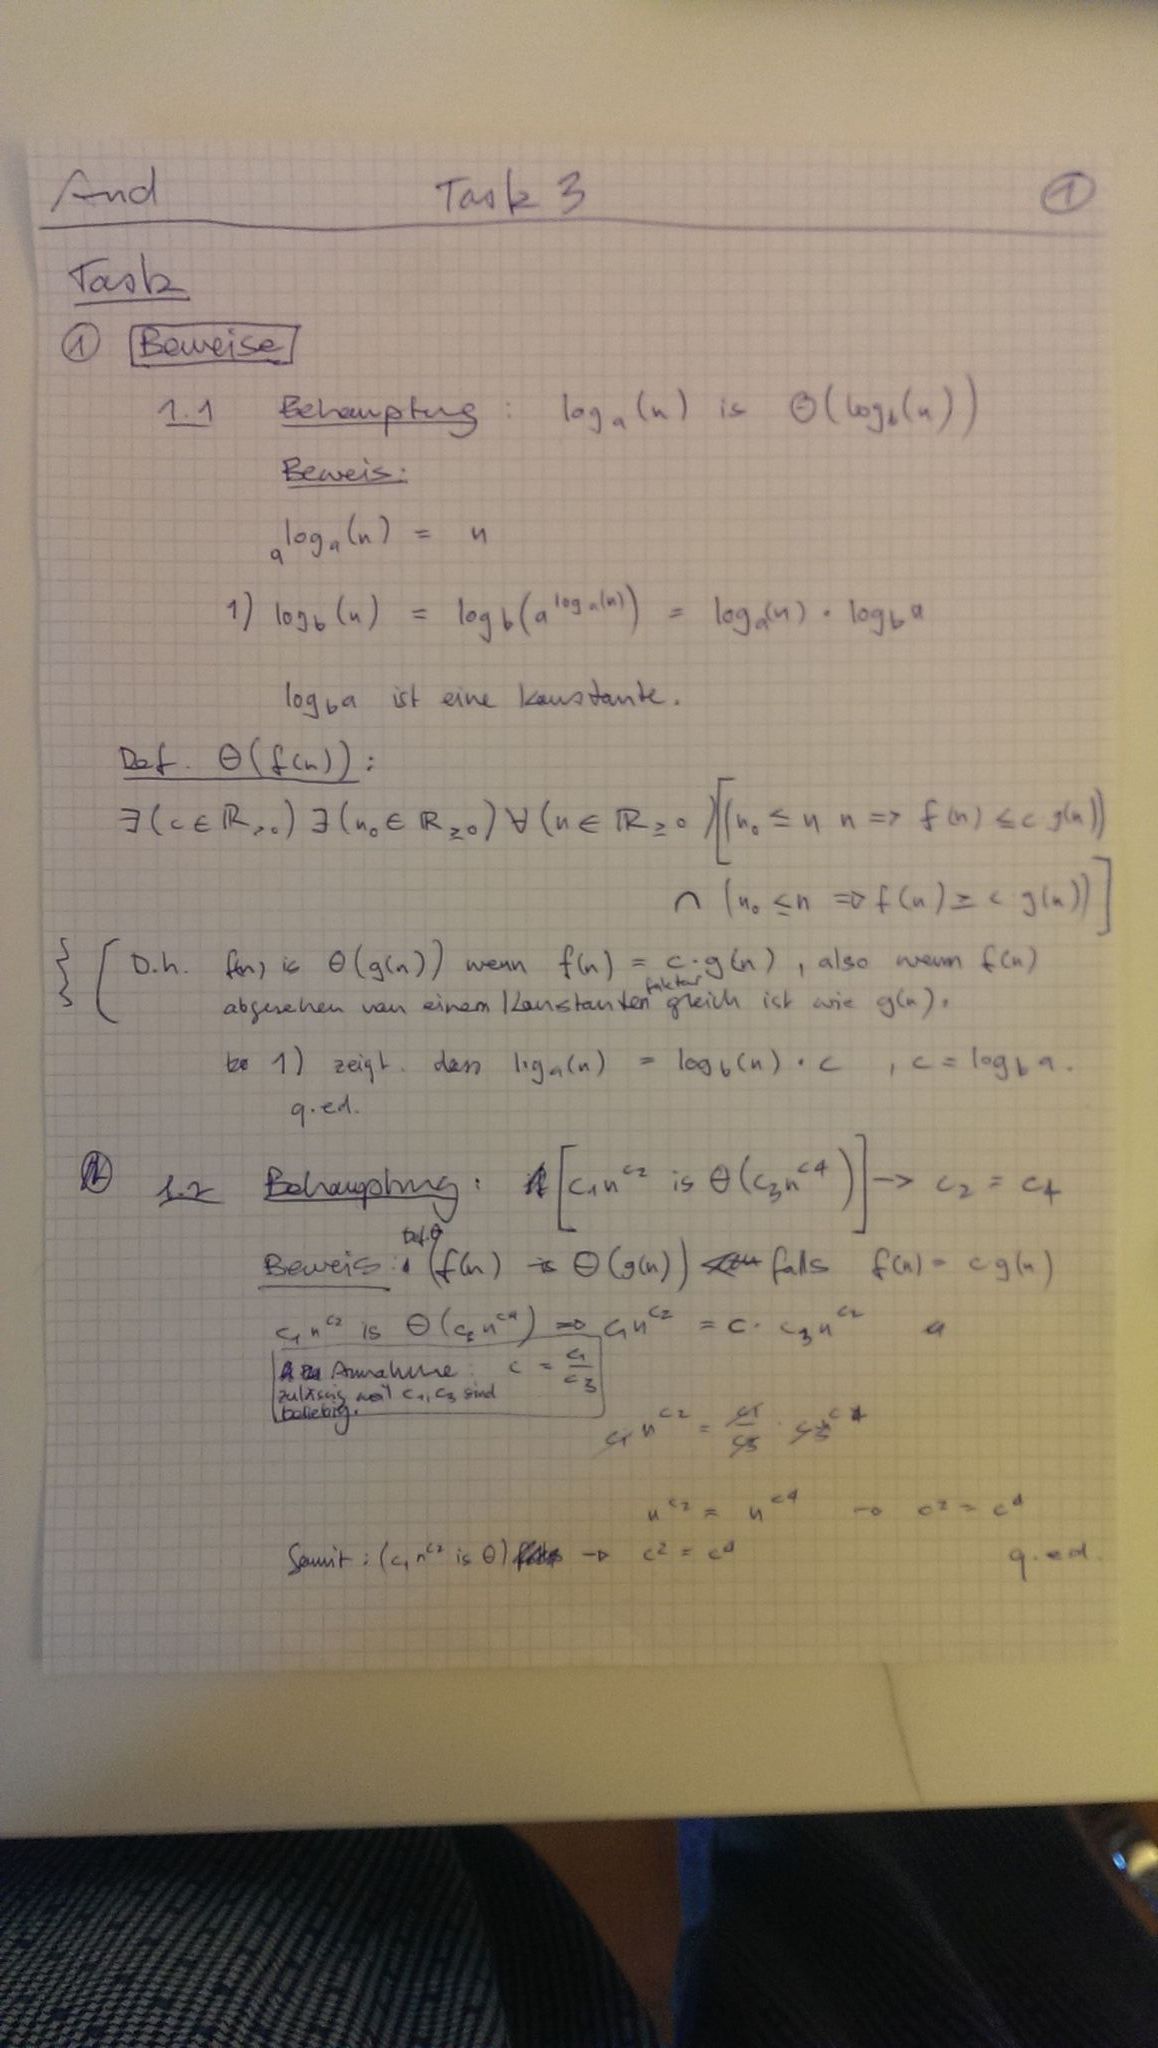 And Task 3 ①
Task
① Beweise
1.1 Behauptung : logₐ(n) is Θ(log_b(n))
Beweis:
a^logₐ(n) = n
1) log_b(n) = log_b(a^logₐ(n)) = logₐ(n) · log_b a
log_b a ist eine Konstante.
Def. Θ(f(n)) :
∃(c ∈ ℝ>0) ∃(n₀ ∈ ℝ≥0) ∀(n ∈ ℝ≥0)[(n₀ ≤ n n => f(n) ≤ c g(n))
∩ (n₀ ≤ n => f(n) ≥ c g(n))]
D.h. f(n) is Θ(g(n)) wenn f(n) = c · g(n) , also wenn f(n)
abgesehen von einem Konstanten faktor gleich ist wie g(n).
1) zeigt. dass logₐ(n) = log_b(n) · c , c = log_b a.
q.ed.
1.2 Behauptung : [c₁n^c₂ is Θ(c₃n^c4)] -> c₂ = c₄
Def. Θ
Beweis : (f(n) is Θ(g(n)) falls f(n) = c g(n)
c₁n^c₂ is Θ(c₃n^c4) => c₁n^c₂ = c · c₃n^c₂
Annahme : c = c₁/c₃
zulässig weil c₁, c₃ sind
beliebig.
c₁ n^c2 = c1/c3 · c3n^c4
n^c2 = n^c4 -> c² = c⁴
Somit : (c₁ n^c2 is Θ) -> c² = c⁴ q.ed.